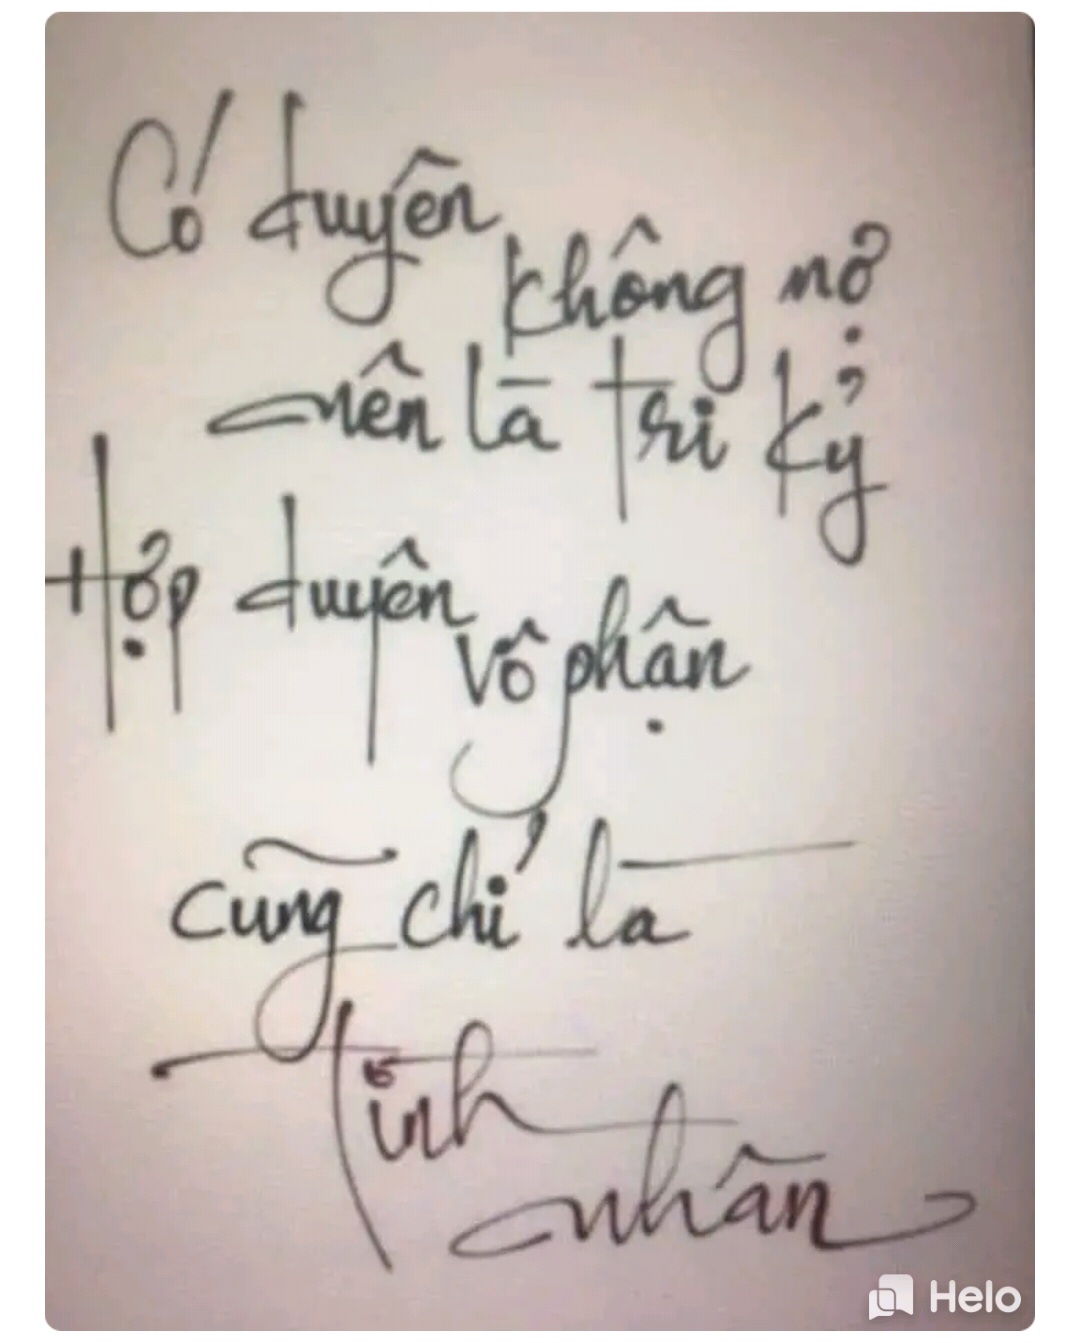 Có duyên không nợ
nên là tri kỷ
Hợp duyên vô phận
cũng chỉ là
tình
nhân
Helo